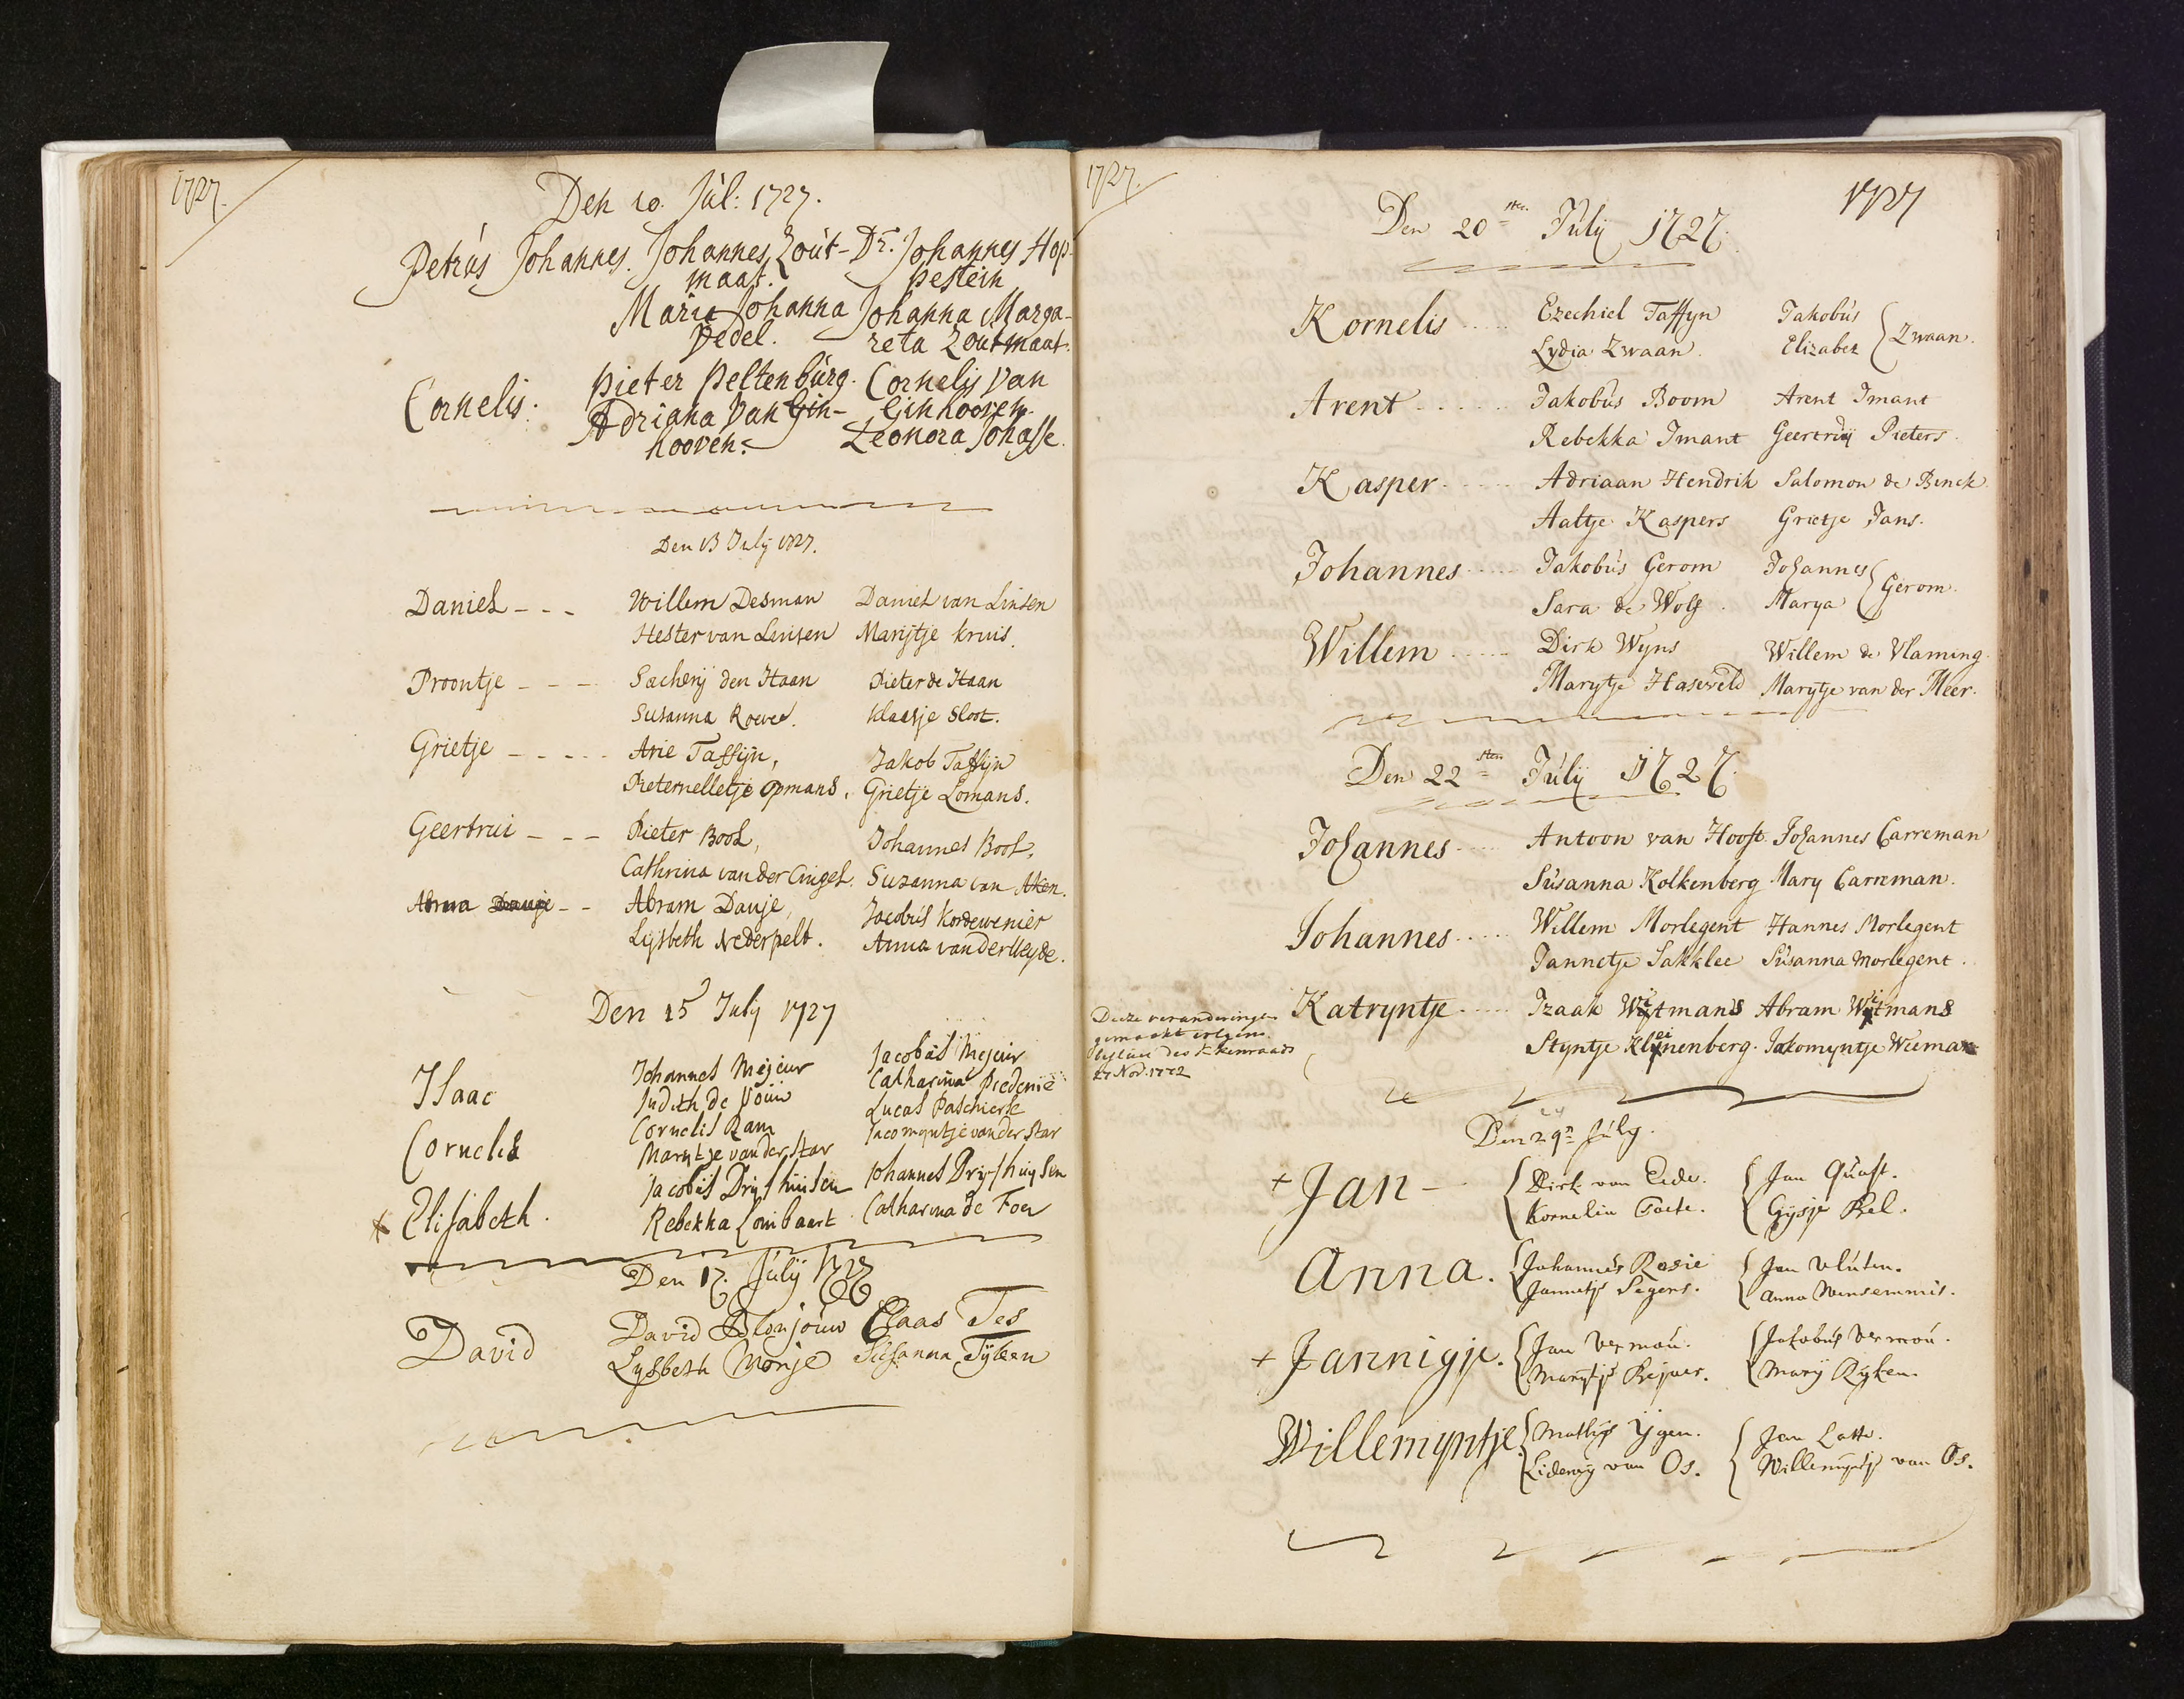 1727.
Den 10. Júl: 1727.
Petrús Johannes. Johannes Zoút- Dr. Johannes Hop-
maat. pestein
Maria Johanna Johanna Marga-
Vedel. reta Zoutmaat.
Cornelis: Pieter Peltenbúrg. Cornelis Van
Adriana Van Gin- Ginhooven.
hooven. Leonora Johasse.
Den 13 July 1727.
Daniel - - - Willem Desman Daniel van Linsen
Hester van Linsen Marijtje kruis.
Proontje - - - Sacherij den Haan Pieter de Haan
Susanna Roever. Klaasje Sloot.
Grietje - - - - - Arie Taffijn, Jakob Taffijn
Pieternelletje Opmans, Grietje Lomans.
Geertrui - - - Pieter Bool, Johannes Bool,
Cathrina van der Cingel. Suzanna van Aken.
Anna Dauje - - Abram Dauje, Jacobús Kordewenier
Lijsbeth Nederpelt. Anna van der Weyde.
Den 15 July 1727
Isaac Johannes Mejeur Jacobús Mejeur
Judith de Vouw Catharina Piedenie
Cornelis Cornelis Ram Lucas Paschierse
Maryntje van der Star Jacomyntje van der Star
x Elisabeth. Jacobús Dryfhuisen Johannes Dryfhuysen
Rebekka Lombaart Catharina de Foer
Den 17. Júlij 1727
David David Blonjouw Claas Tes
Lysbeth Monje Susanna Tyleen
1727.
1727
Den 20sten Júlij 1727.
Kornelis ..... Ezechiel Taffyn Jakobús
Lydia Zwaan. Elizabet { Zwaan.
Arent ...... Jakobús Boom Arent Imant
Rebekka Imant Geertruij Pieters.
Kasper ..... Adriaan Hendrik Salomon de Binck.
Aaltje Kaspers Grietje Jans.
Johannes ..... Jakobús Gerom Johannes
Sara de Wolf. Marya { Gerom.
Willem ..... Dirk Wyns Willem de Vlaming.
Marytje Haseveld Marytje van der Meer.
Den 22sten Júlij 1727.
Johannes .... Antoon van Hooft. Johannes Carreman
Súsanna Kolkenberg Mary Carreman.
Johannes ..... Willem Morlegent Hannes Morlegent
Jannetje Sakklee Súsanna Morlegent.
Katryntje ..... Izaak Witmans Abram Witmans
Styntje Kleinenberg. Jakomyntje Wiemax
Deeze veranderingen
gemaakt volgens
des Kerkenraads
27 Nov. 1772
Den 29n Júly.
+ Jan - { Dirk van Eide. { Jan Qúast.
Kornelia Taete. Gijsje Bel.
Anna. { Johannes Rosie { Jan Vlúten.
Jannetje Segers. Anna Wensemmis.
+ Jannigje. { Jan Vermoú. { Jakobús Vermoú.
Marytje Reijner. Marij Ryken.
Willemyntje { Mathijs Ygen. { Jan Latte.
Lidewy van Os. Willemyntje van Os.